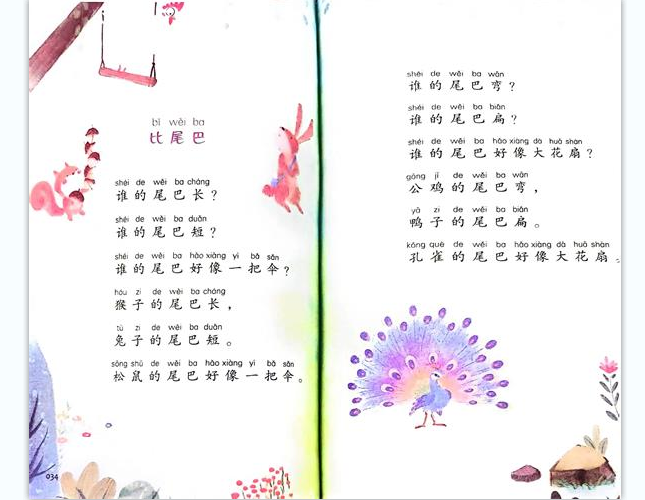 bǐ wěi ba
比尾巴
shéi de wěi ba cháng
谁的尾巴长？
shéi de wěi ba duǎn
谁的尾巴短？
shéi de wěi ba hǎo xiàng yì bǎ sǎn
谁的尾巴好像一把伞？
hóu zi de wěi ba cháng
猴子的尾巴长，
tù zi de wěi ba duǎn
兔子的尾巴短。
sōng shǔ de wěi ba hǎo xiàng yì bǎ sǎn
松鼠的尾巴好像一把伞。
034
shéi de wěi ba wān
谁的尾巴弯？
shéi de wěi ba biǎn
谁的尾巴扁？
shéi de wěi ba hǎo xiàng dà huā shàn
谁的尾巴好像大花扇？
gōng jī de wěi ba wān
公鸡的尾巴弯，
yā zi de wěi ba biǎn
鸭子的尾巴扁。
kǒng què de wěi ba hǎo xiàng dà huā shàn
孔雀的尾巴好像大花扇。